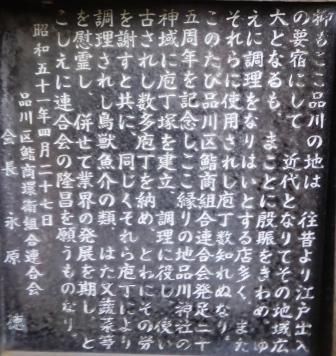 抑もここ品川の地は 往昔より江戸出入
の要宿にして 近代となりてその地域広
大となるも まことに殷賑をきわめ ゆ
えに調理をなりはいとする店多く また
それらに使用されし庖丁数知れぬなり
このたび品川区鮨商組合連合会発足二十
五周年を記念しここ縁りの地品川神社の
神域に庖丁塚を建立し 調理に役し 使い
古されし数多庖丁を納め とわにその労
を謝すと共に 同じくそれら庖丁により
調理されし鳥獣魚介の類 はた又蔬菜等
を慰霊し 併せて業界の発展を期し と
こしえに連合会の隆昌を願うものなり
昭和五十一年四月二十七日
品川区鮨商環衛組合連合会
会長 永原 徳